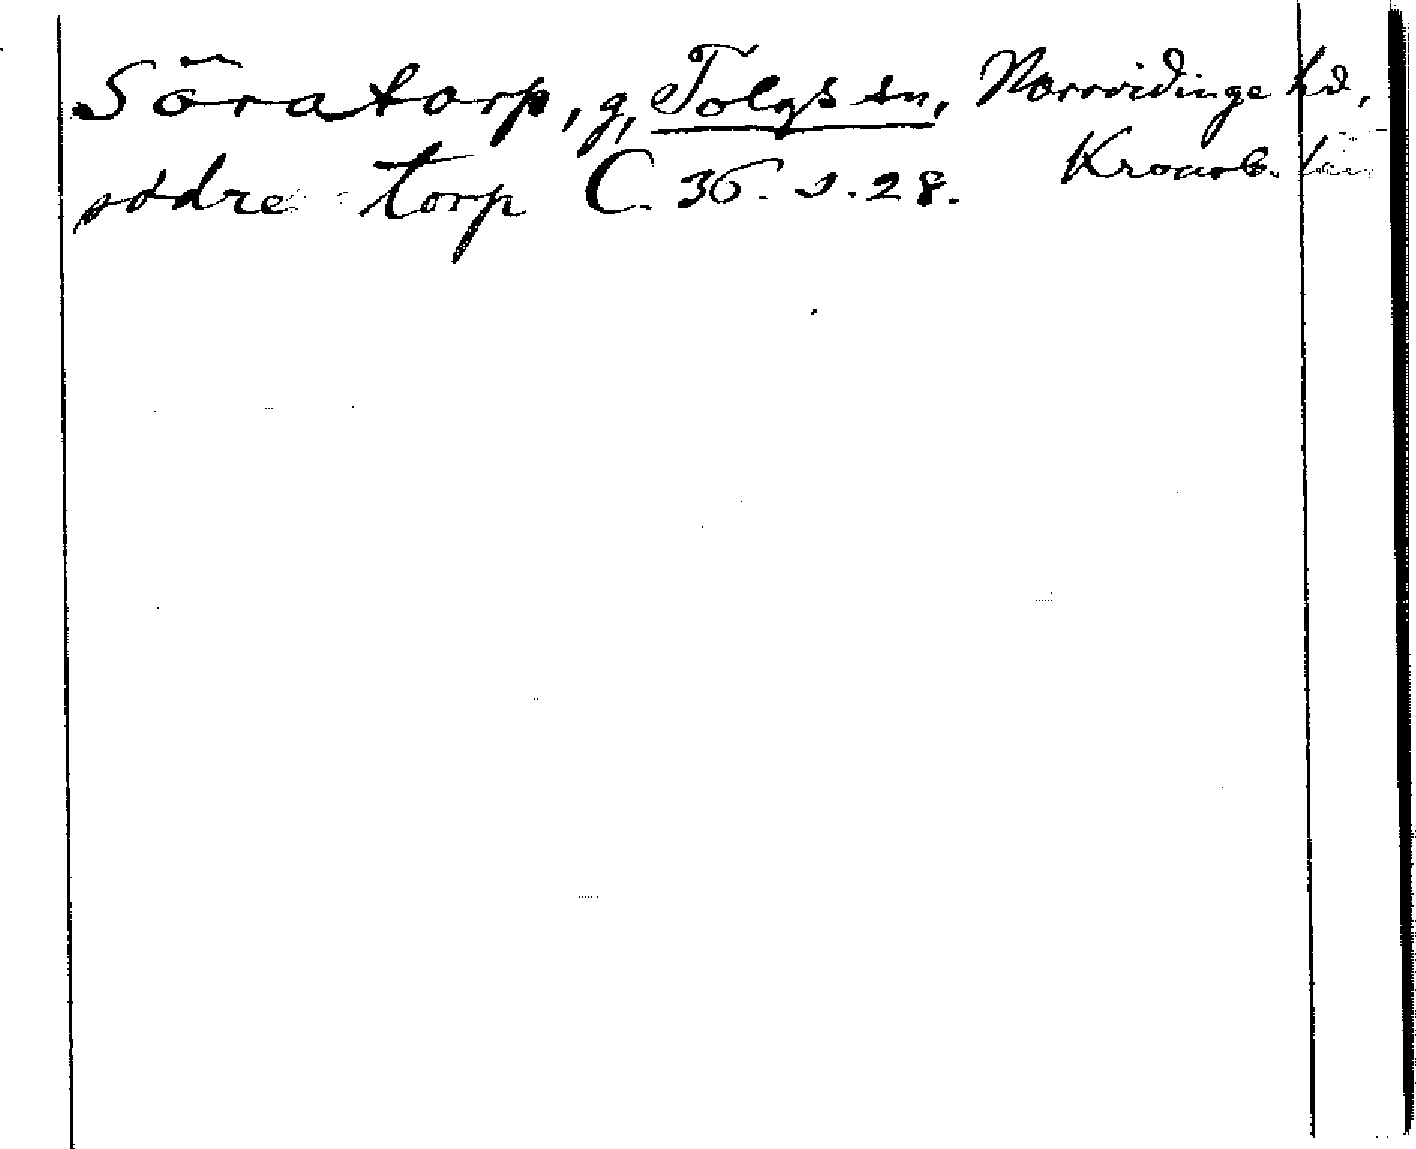 Söratorp, g, Tolgs sn, Norrvidinge hd,
Kronob. län
södre torp C. 36. s. 28.